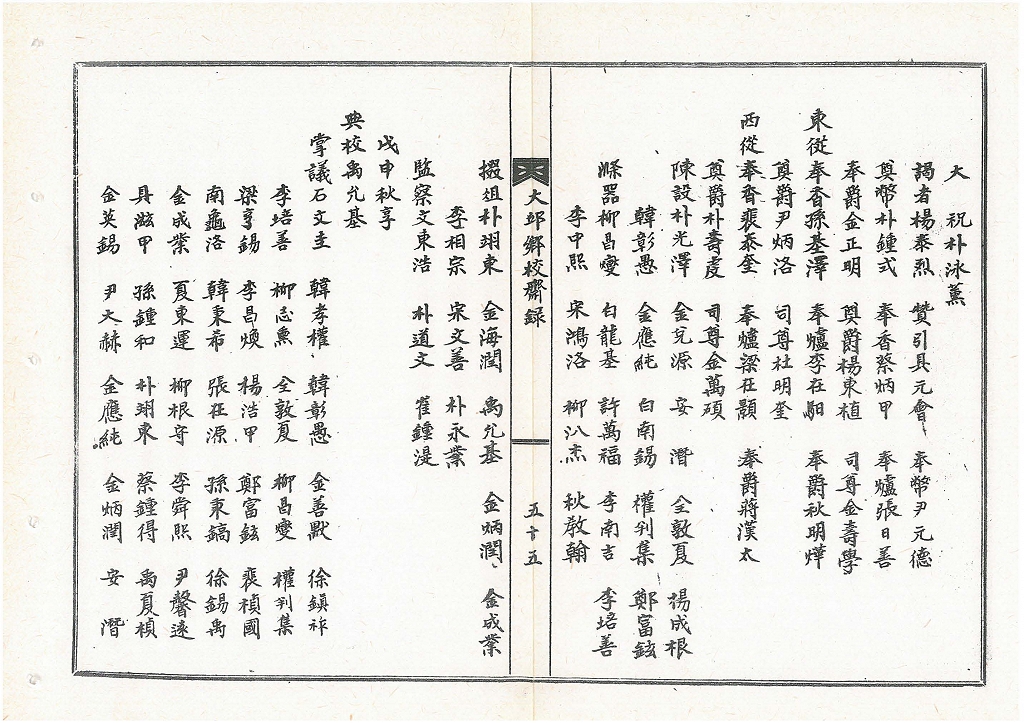 大　祝朴泳薰
謁者楊泰烈　贊引具元會　奉幣尹元德
奠幣朴鍾式　奉香蔡炳甲　奉爐張日善
奉爵金正明　奠爵楊東植　司尊金壽學
東從奉香孫基澤　奉爐李在馹　奉爵秋明燁
奠爵尹炳洛　司尊杜明奎
西從奉香裵泰奎　奉爐梁在顥　奉爵蔣漢太
奠爵朴壽虔　司尊金萬碩
陳設朴光澤　金兌源　安　潛　全敦夏　楊成根
韓彰愚　金應純　白南錫　權刋集　鄭富鉉
滌器柳昌燮　白龍基　許萬福　李南吉　李培善
李中熙　宋鴻洛　柳㳄杰　秋敎翰
大邱鄉校齋録
五十五
掇俎朴珝東　金海潤　禹允基　金炳潤　金成業
李相宗　宋文善　朴永業
監察文東浩　朴道文　崔鍾湜
戊申秋享
典校禹允基
掌議石文圭　韓孝權　韓彰愚　金善默　徐鎭祚
李培善　柳志熏　全敦夏　柳昌燮　權刋集
梁亨錫　李昌煥　楊浩甲　鄭富鉉　裵禎國
南龜洛　韓東希　張在源　孫東鎬　徐錫禹
金成業　夏東運　柳根守　李舜熙　尹馨遠
具滋甲　孫鍾和　朴珝東　蔡鍾得　禹夏楨
金英錫　尹大赫　金應純　金炳潤　安　潛